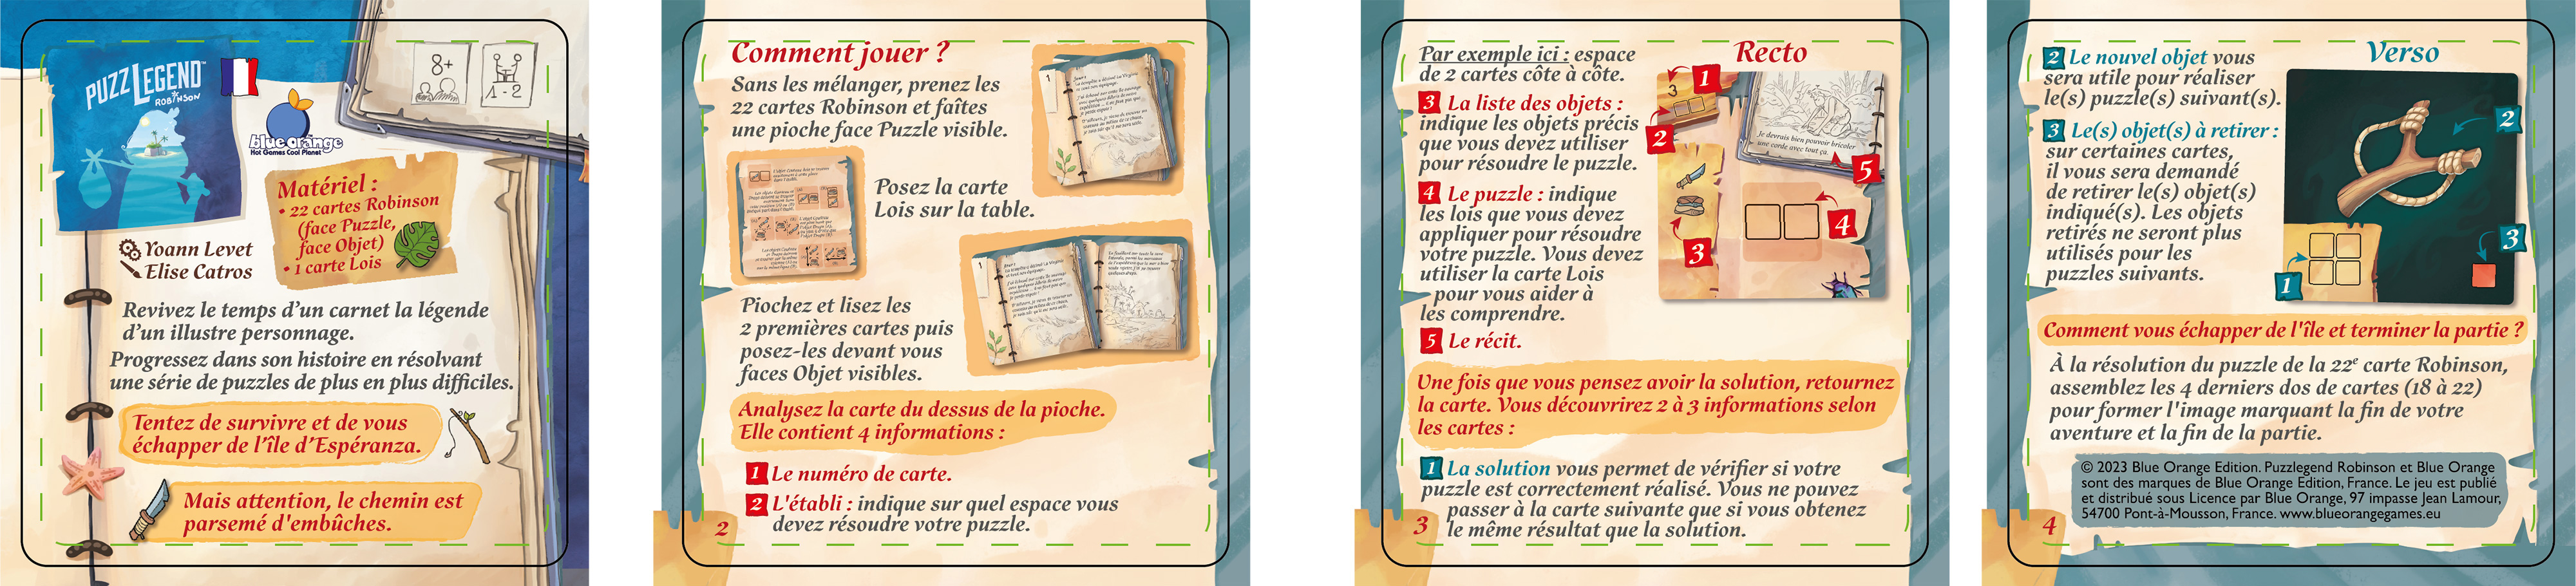 PUZZLEGEND™
ROBINSON
8+
1-2
blue orange
Hot Games Cool Planet
Matériel :
• 22 cartes Robinson
(face Puzzle,
face Objet)
• 1 carte Lois
Yoann Levet
Elise Catros
Revivez le temps d'un carnet la légende
d'un illustre personnage.
Progressez dans son histoire en résolvant
une série de puzzles de plus en plus difficiles.
Tentez de survivre et de vous
échapper de l'île d'Espéranza.
Mais attention, le chemin est
parsemé d'embûches.
Comment jouer ?
Sans les mélanger, prenez les
22 cartes Robinson et faîtes
une pioche face Puzzle visible.
1
Posez la carte
Lois sur la table.
1
Piochez et lisez les
2 premières cartes puis
posez-les devant vous
faces Objet visibles.
Analysez la carte du dessus de la pioche.
Elle contient 4 informations :
1 Le numéro de carte.
2 L'établi : indique sur quel espace vous
devez résoudre votre puzzle.
2
Par exemple ici : espace
de 2 cartes côte à côte.
3 La liste des objets :
indique les objets précis
que vous devez utiliser
pour résoudre le puzzle.
4 Le puzzle : indique
les lois que vous devez
appliquer pour résoudre
votre puzzle. Vous devez
utiliser la carte Lois
pour vous aider à
les comprendre.
5 Le récit.
Recto
1
3
2
Je devrais bien pouvoir bricoler
une corde avec tout ça.
5
4
3
Une fois que vous pensez avoir la solution, retournez
la carte. Vous découvrirez 2 à 3 informations selon
les cartes :
1 La solution vous permet de vérifier si votre
puzzle est correctement réalisé. Vous ne pouvez
passer à la carte suivante que si vous obtenez
le même résultat que la solution.
3
2 Le nouvel objet vous
sera utile pour réaliser
le(s) puzzle(s) suivant(s).
3 Le(s) objet(s) à retirer :
sur certaines cartes,
il vous sera demandé
de retirer le(s) objet(s)
indiqué(s). Les objets
retirés ne seront plus
utilisés pour les
puzzles suivants.
Verso
2
3
1
Comment vous échapper de l'île et terminer la partie ?
À la résolution du puzzle de la 22e carte Robinson,
assemblez les 4 derniers dos de cartes (18 à 22)
pour former l'image marquant la fin de votre
aventure et la fin de la partie.
© 2023 Blue Orange Edition. Puzzlegend Robinson et Blue Orange
sont des marques de Blue Orange Edition, France. Le jeu est publié
et distribué sous Licence par Blue Orange, 97 impasse Jean Lamour,
54700 Pont-à-Mousson, France. www.blueorangegames.eu
4